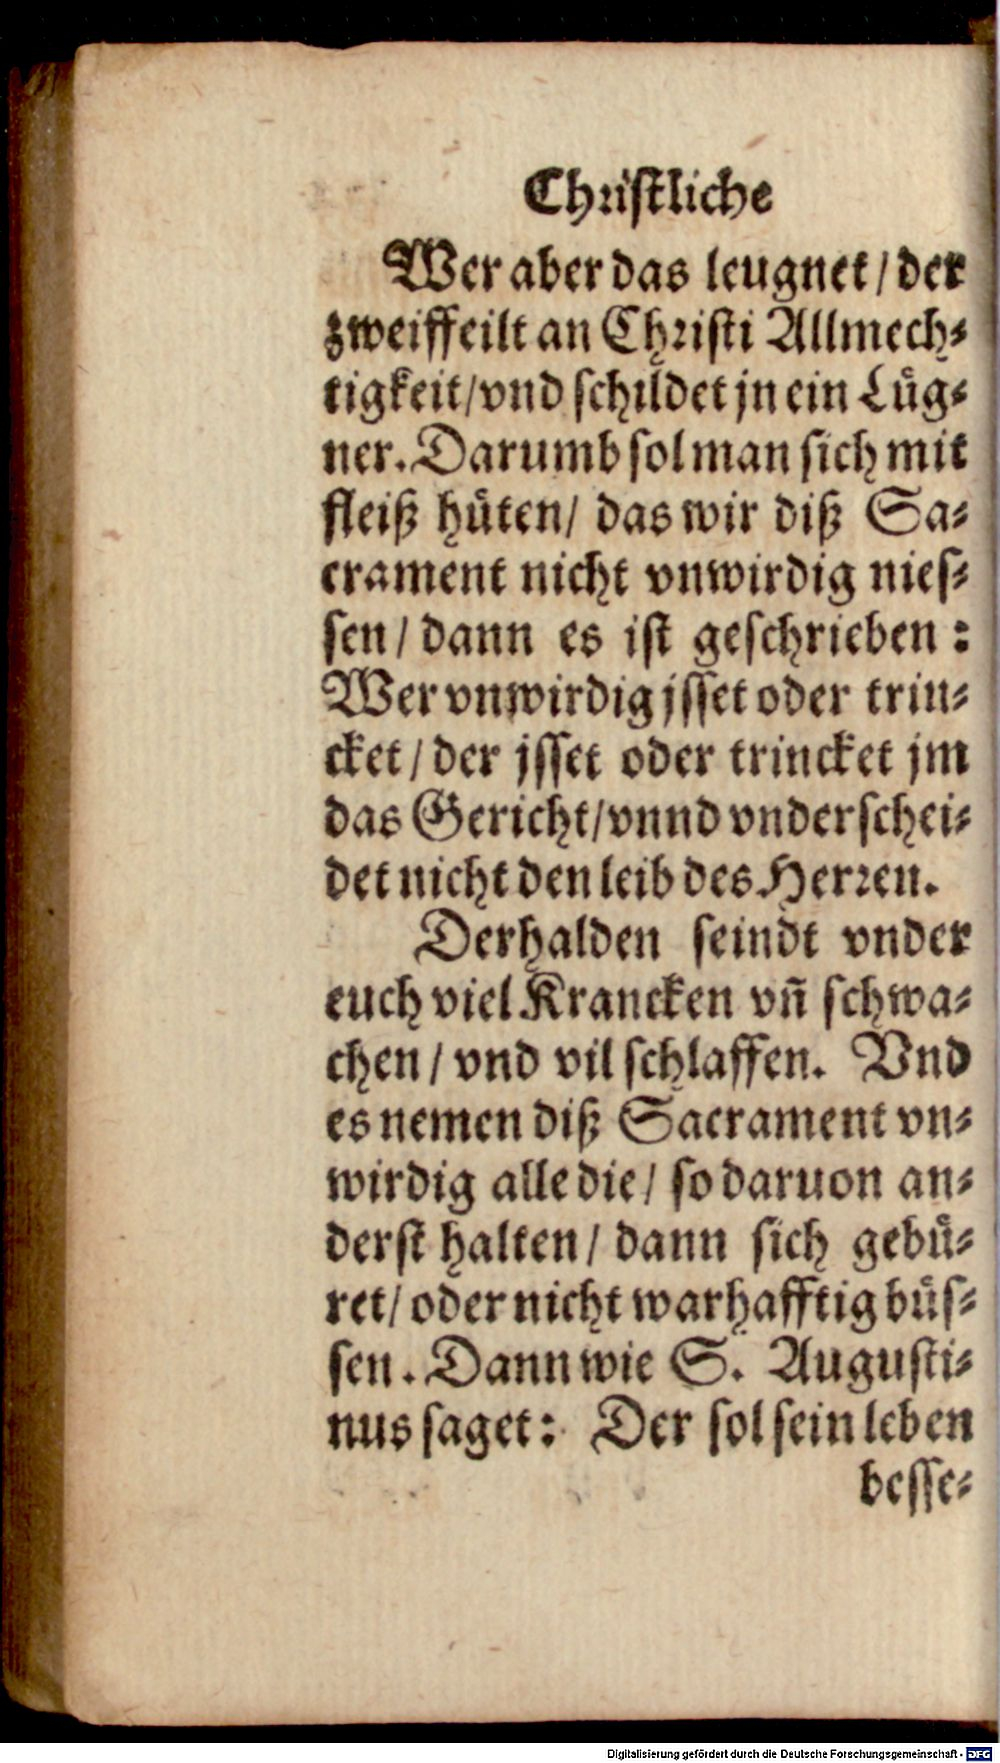 Christliche
Wer aber das leugnet / der
zweiffeilt an Christi Allmech⸗
tigkeit / vnd schildet jn ein Lüg⸗
ner. Darumb sol man sich mit
fleiß hüten / das wir diß Sa⸗
crament nicht vnwirdig nies⸗
sen / dann es ist geschrieben :
Wer vnwirdig jsset oder trin⸗
cket / der jsset oder trincket jm
das Gericht / vnnd vnderschei⸗
det nicht den leib des Herren.
Derhalden seindt vnder
euch viel Krancken vñ schwa⸗
chen / vnd vil schlaffen. Vnd
es nemen diß Sacrament vn⸗
wirdig alle die / so daruon an⸗
derst halten / dann sich gebü⸗
ret / oder nicht warhafftig büs⸗
sen. Dann wie S. Augusti⸗
nus saget: Der sol sein leben
besse⸗
Digitalisierung gefördert durch die Deutsche Forschungsgemeinschaft - DFG